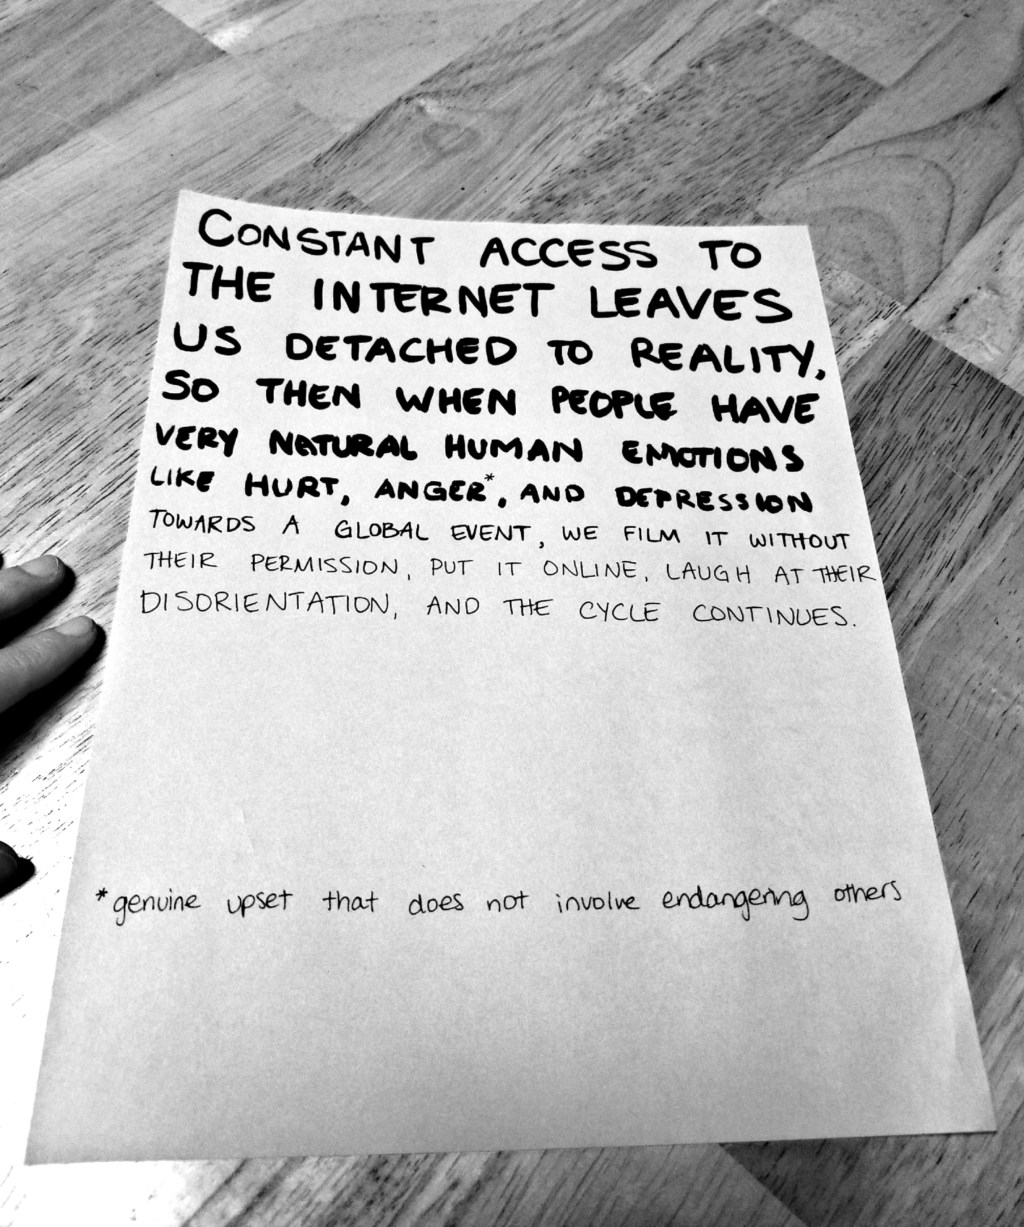 CONSTANT ACCESS TO
THE INTERNET LEAVES
US DETACHED TO REALITY,
SO THEN WHEN PEOPLE HAVE
VERY NATURAL HUMAN EMOTIONS
LIKE HURT, ANGER*, AND DEPRESSION
TOWARDS A GLOBAL EVENT, WE FILM IT WITHOUT
THEIR PERMISSION, PUT IT ONLINE, LAUGH AT THEIR
DISORIENTATION, AND THE CYCLE CONTINUES.
*genuine upset that does not involve endangering others